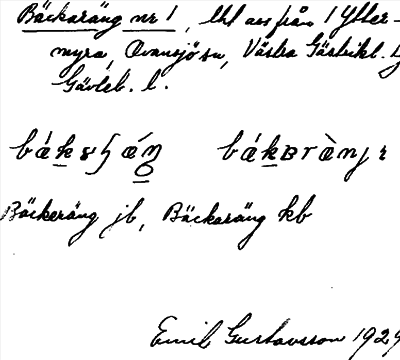 Bäckaräng nr 1, lht avs från 1 Ytter-
myra, Ovansjö sn, Västra Gästrikl.
Gävleb. l.
Bäckeräng jb, Bäckaräng kb
Emil Gustavsson 1929